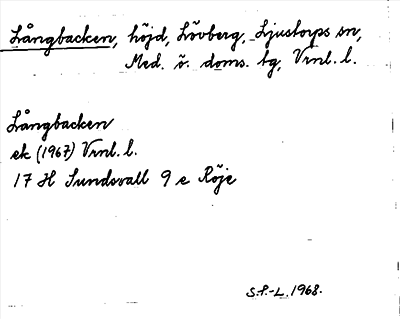 Långbacken, höjd, Lövberg, Ljustorps sn,
Med. ö. doms. tg, Vrnl. l.
Långbacken
ek (1967) Vrnl. l.
17 H Sundsvall 9 e Röje
S.P.-L. 1968.